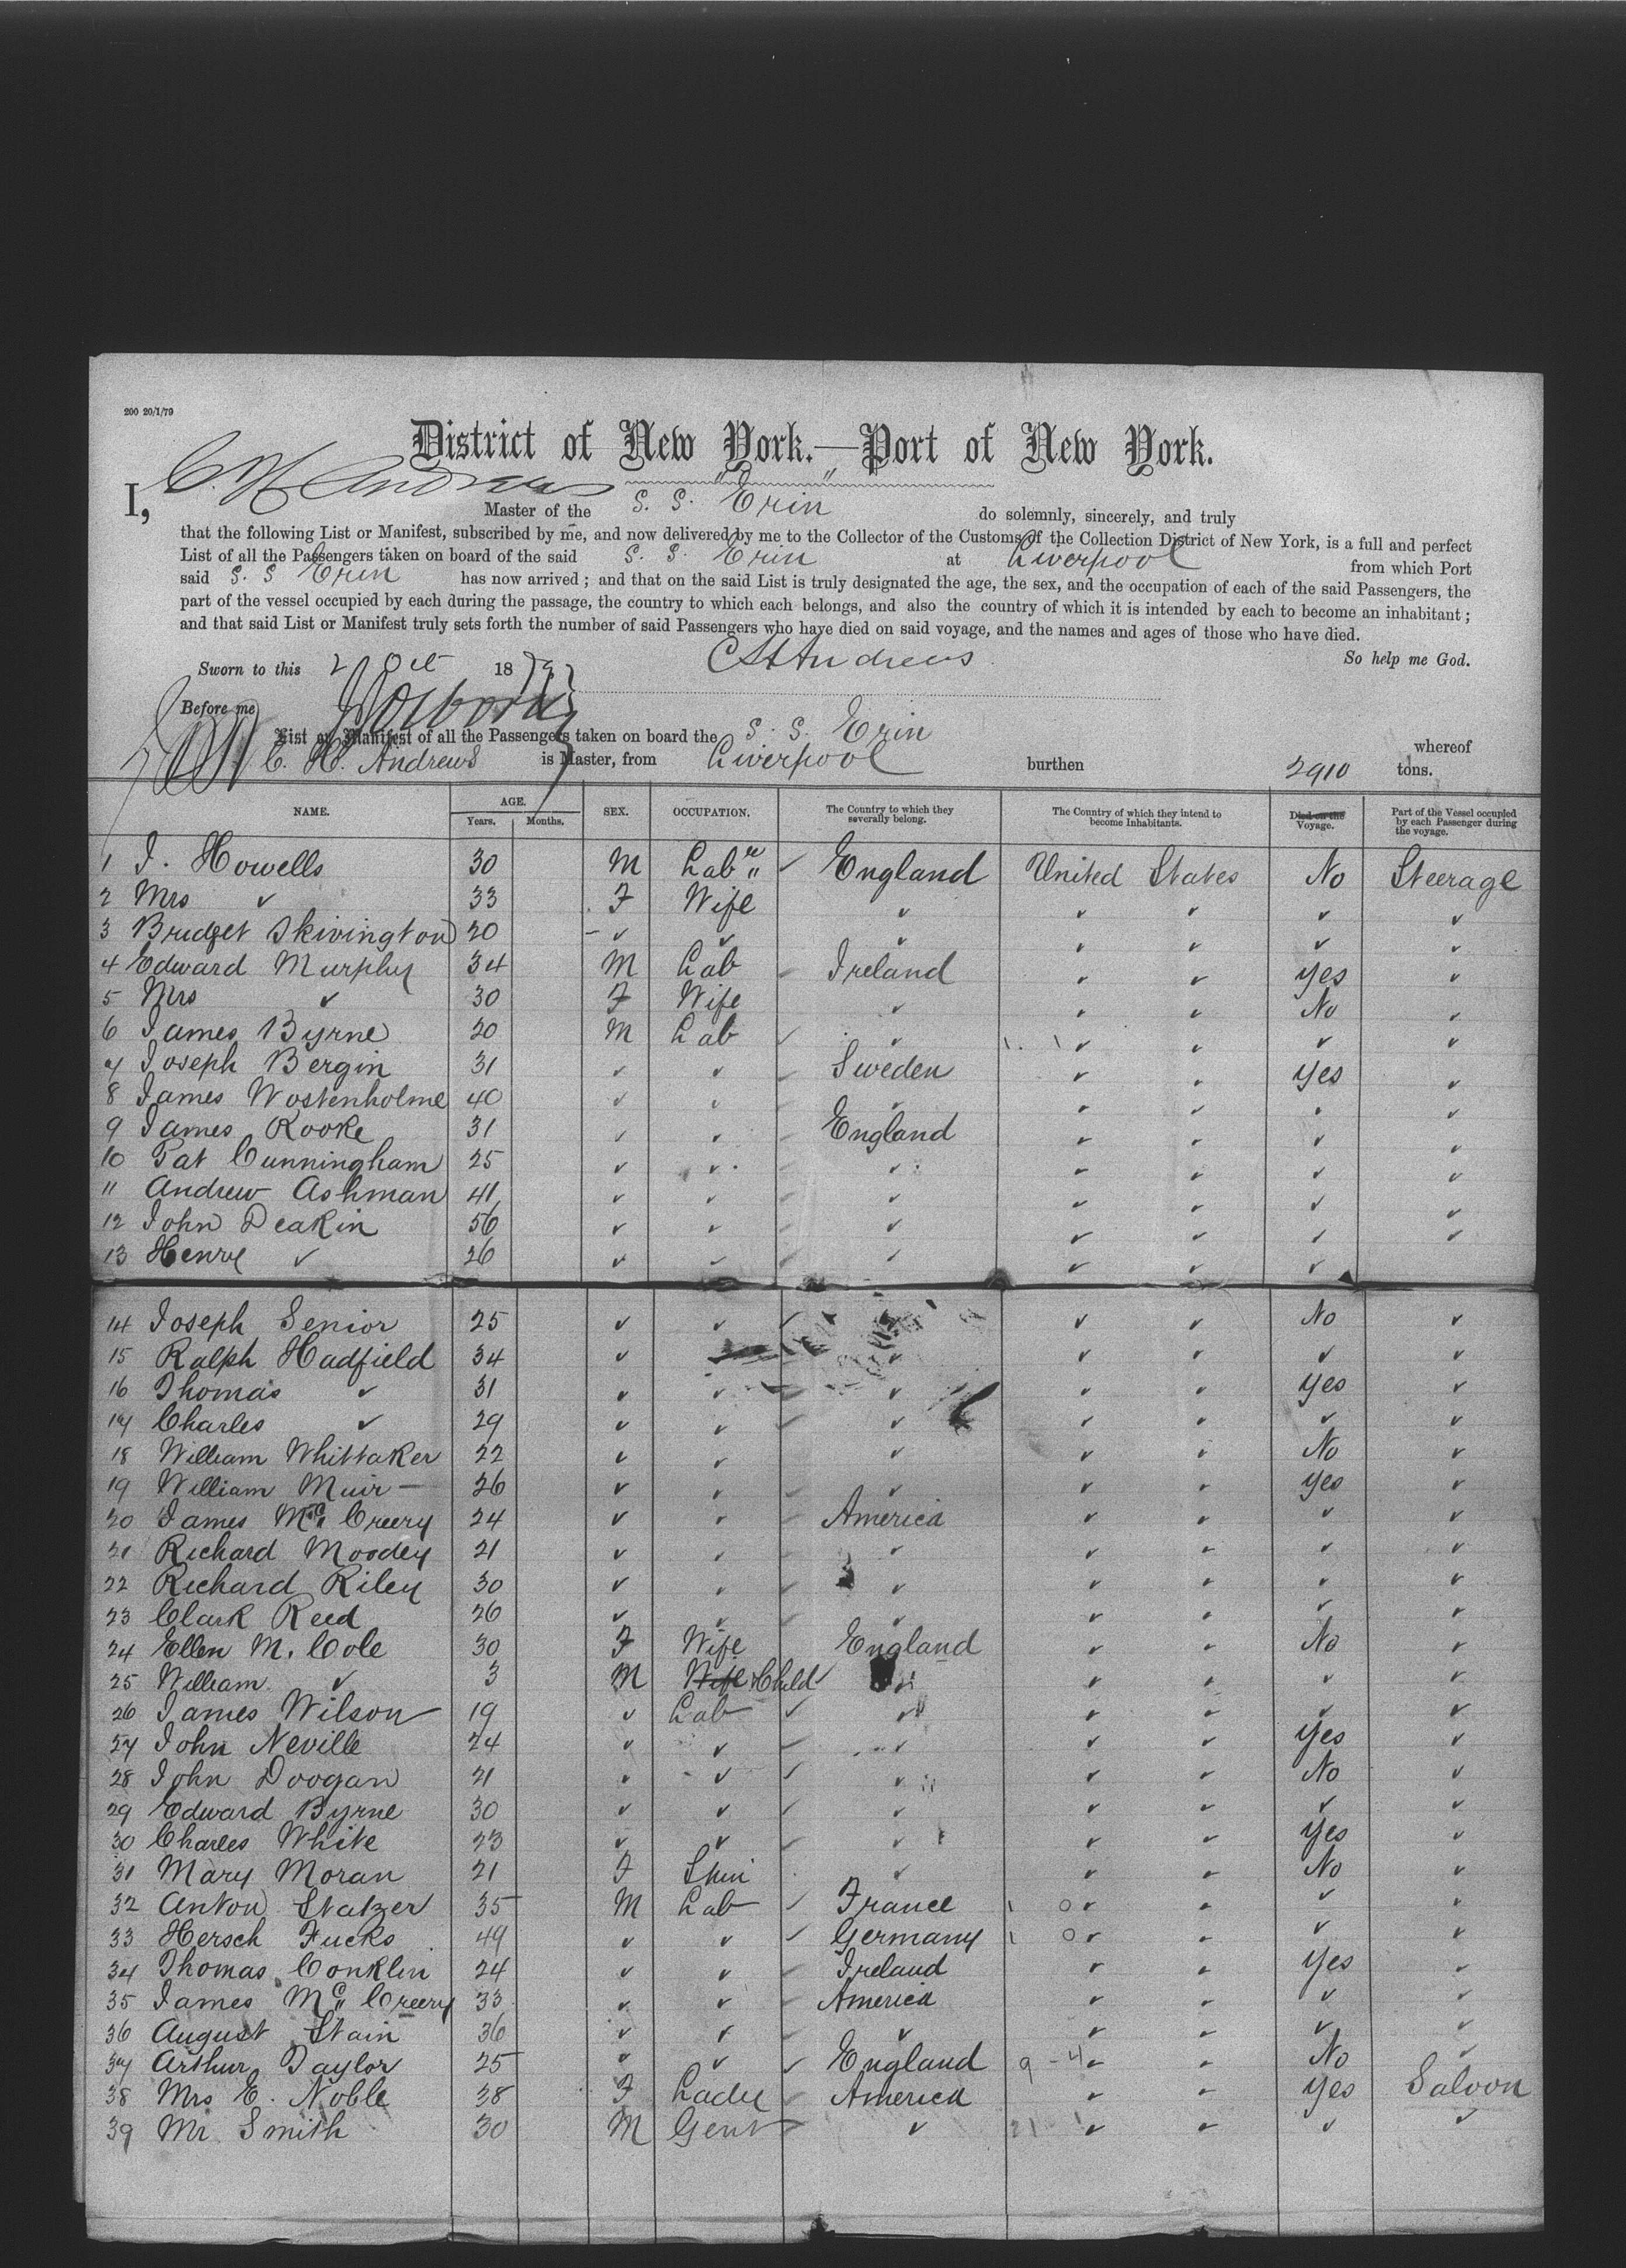 200 20/1/79
District of New York.—Port of New York.
I, C. H. Andrews Master of the S. S. Erin do solemnly, sincerely, and truly
that the following List or Manifest, subscribed by me, and now delivered by me to the Collector of the Customs of the Collection District of New York, is a full and perfect
List of all the Passengers taken on board of the said S. S. Erin at Liverpool from which Port
said S. S Erin has now arrived ; and that on the said List is truly designated the age, the sex, and the occupation of each of the said Passengers, the
part of the vessel occupied by each during the passage, the country to which each belongs, and also the country of which it is intended by each to become an inhabitant ;
and that said List or Manifest truly sets forth the number of said Passengers who have died on said voyage, and the names and ages of those who have died.
So help me God.
Sworn to this 2 Oct 1879 C H Andrews
Before me
List or Manifest of all the Passengers taken on board the S. S. Erin whereof
C. H. Andrews is Master, from Liverpool burthen 2910 tons.
NAME. AGE. Years. Months. SEX. OCCUPATION. The Country to which they severally belong. The Country of which they intend to become Inhabitants. Died on the Voyage. Part of the Vessel occupied by each Passenger during the voyage.
1 J. Howells 30 M Labre ✓ England United States No Steerage
2 Mrs ✓ 33 F Wife ✓ ✓ ✓ ✓ ✓
3 Bridget Skivington 20 ✓ ✓ ✓ ✓ ✓ ✓ ✓
4 Edward Murphy 34 M Lab Ireland ✓ ✓ Yes ✓
5 Mrs ✓ 30 F Wife ✓ ✓ ✓ No ✓
6 James Byrne 20 M Lab ✓ ✓ ✓ ✓ ✓ ✓
7 Joseph Bergin 31 ✓ ✓ Sweden ✓ ✓ Yes ✓
8 James Wostenholme 40 ✓ ✓ ✓ ✓ ✓ ✓ ✓
9 James Rooke 31 ✓ ✓ England ✓ ✓ ✓ ✓
10 Pat Cunningham 25 ✓ ✓ ✓ ✓ ✓ ✓ ✓
11 Andrew Ashman 41 ✓ ✓ ✓ ✓ ✓ ✓ ✓
12 John Deakin 56 ✓ ✓ ✓ ✓ ✓ ✓ ✓
13 Henry ✓ 26 ✓ ✓ ✓ ✓ ✓ ✓
14 Joseph Senior 25 ✓ ✓ ✓ ✓ ✓ No ✓
15 Ralph Hadfield 34 ✓ ✓ ✓ ✓ ✓ ✓
16 Thomas ✓ 31 ✓ ✓ ✓ ✓ ✓ Yes ✓
17 Charles ✓ 29 ✓ ✓ ✓ ✓ ✓ ✓ ✓
18 William Whittaker 22 ✓ ✓ ✓ ✓ ✓ No ✓
19 William Muir 26 ✓ ✓ ✓ ✓ ✓ Yes ✓
20 James Mc Creery 24 ✓ ✓ America ✓ ✓ ✓ ✓
21 Richard Moodey 21 ✓ ✓ ✓ ✓ ✓ ✓ ✓
22 Richard Riley 30 ✓ ✓ ✓ ✓ ✓ ✓ ✓
23 Clark Reed 26 ✓ ✓ ✓ ✓ ✓ ✓ ✓
24 Ellen M. Cole 30 F Wife England ✓ ✓ No ✓
25 William ✓ 3 M Wife Child ✓ ✓ ✓ ✓
26 James Wilson 19 ✓ Lab ✓ ✓ ✓ ✓ ✓ ✓
27 John Neville 24 ✓ ✓ ✓ ✓ ✓ Yes ✓
28 John Doogan 21 ✓ ✓ ✓ ✓ ✓ ✓ No ✓
29 Edward Byrne 30 ✓ ✓ ✓ ✓ ✓ ✓ ✓ ✓
30 Charles White 23 ✓ ✓ ✓ ✓ ✓ Yes ✓
31 Mary Moran 21 F Spin ✓ ✓ ✓ No ✓
32 Anton Statzer 35 M Lab ✓ France ✓ ✓ ✓ ✓
33 Hersch Fucks 49 ✓ ✓ ✓ Germany ✓ ✓ ✓ ✓
34 Thomas Conklin 24 ✓ ✓ Ireland ✓ ✓ Yes ✓
35 James Mc Creery 33 ✓ ✓ America ✓ ✓ ✓ ✓
36 August Stain 36 ✓ ✓ ✓ ✓ ✓ ✓ ✓
37 Arthur Taylor 25 ✓ ✓ ✓ England 9 - 4 ✓ ✓ No ✓
38 Mrs E. Noble 38 F Lady America ✓ ✓ Yes Saloon
39 Mr Smith 30 M Gent ✓ 21 - 1 ✓ ✓ ✓ ✓